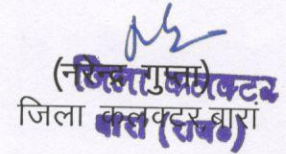 (नरेन्द्र गुप्ता)
जिला कलक्टर
जिला कलक्टर बारां
बारां (राज०)